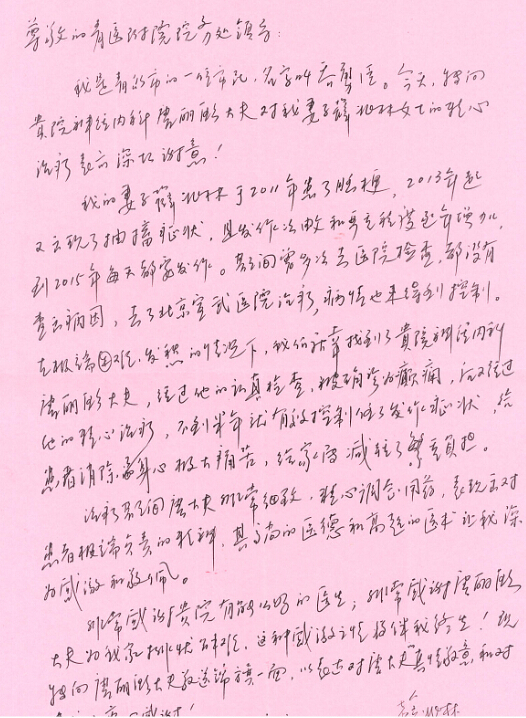 尊敬的青医附院院务处领导:
我是青岛市的一位市民,名字叫  。今天,特向
贵院神经内科唐丽影大夫对我妻子薛兆林女士的精心
治疗表示深切谢意!
我的妻子薛兆林于2011年患了脑梗,2013年起
又出现了抽搐症状,且发作次数和严重程度逐年增加,
到2015年每天都要发作。期间曾多次去医院检查,都没有
查出病因,去了北京宣武医院治疗,病情也未得到控制。
在极端困难,发愁的情况下,我们 找到了贵院神经内科
唐丽影大夫,经过他的认真检查,被确诊为癫痫,后经过
他的精心治疗,不到半年就有效控制住了发作症状,给
患者消除了身心极大痛苦,给家庭减轻了 重负担。
治疗期间唐大夫非常细致,精心调合用药,表现出对
患者极端负责的精神,其高尚的医德和高超的医术让我深
为感激和敬佩。
非常感谢贵院有能 好的医生;非常感谢唐丽影
大夫为我家排忧解难,这种感激之情将伴我终生!现
特向唐丽影大夫敬送锦旗一面,以表达对唐大夫真情敬意和对